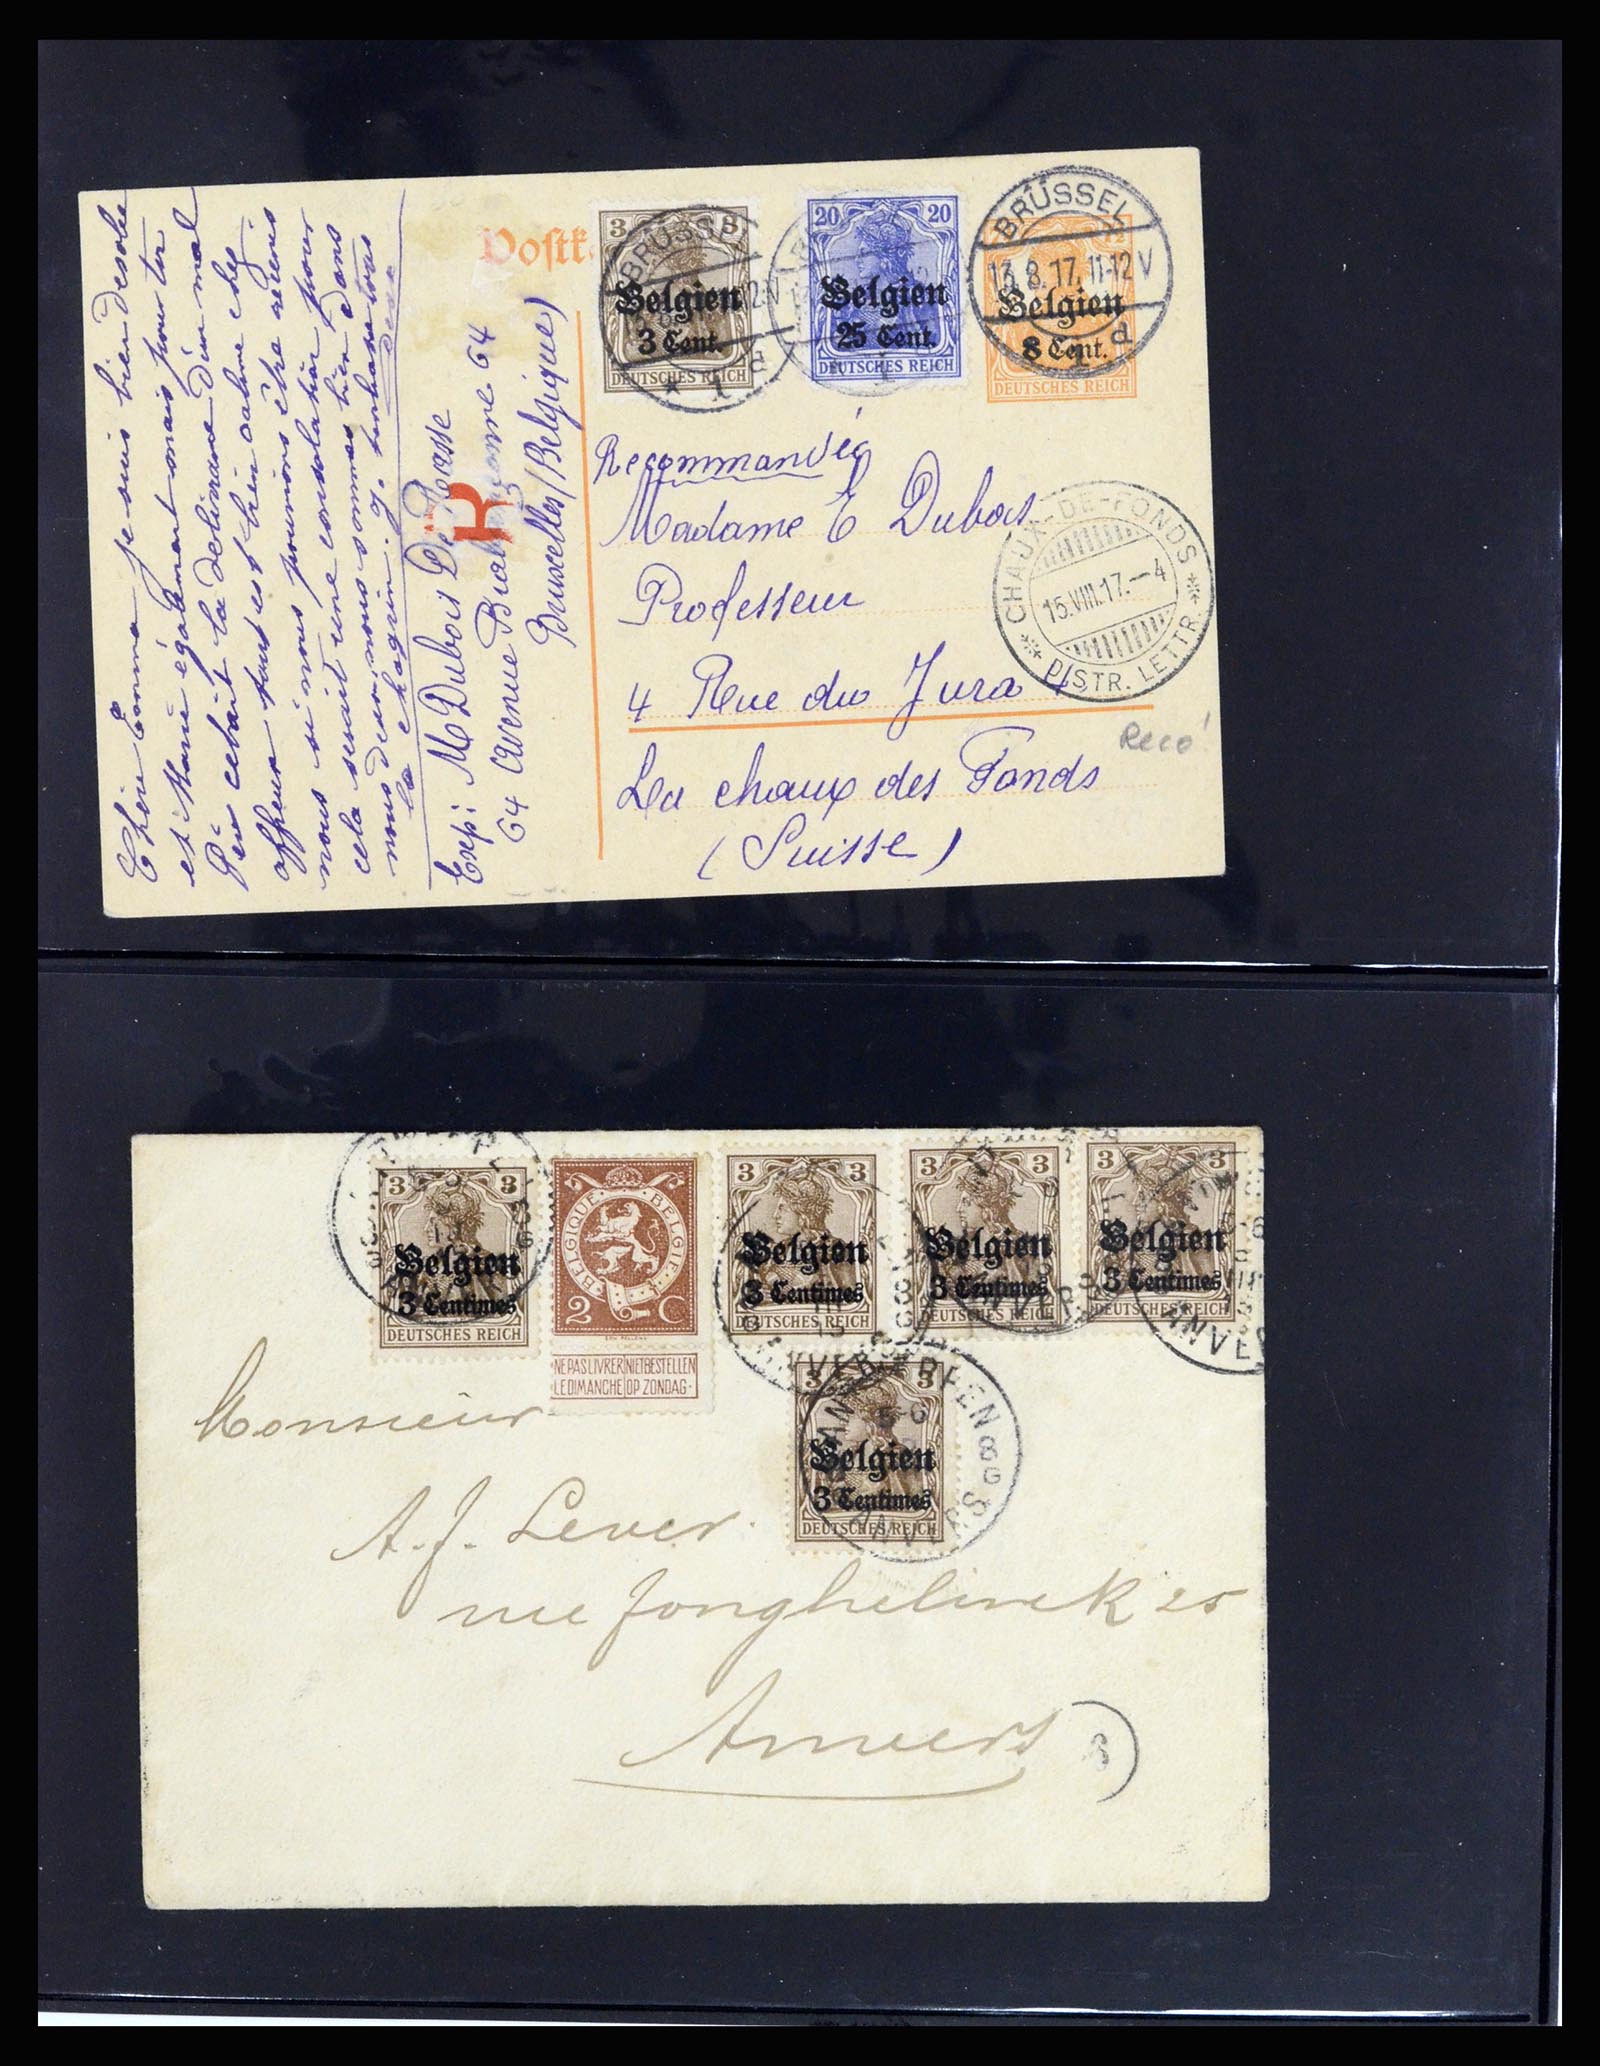 Chère Emma je suis bien desolée
et Marie également mais pour toi
Père cebait la delivrance d'un mal
affreux tout est bien calme chez
nous si nous pourrions être réunis
cela serait une consolation pour
nous deux nous sommes bien dans
le chagrin. je t'embrasse tous
Exp: M Dubois De
64 Avenue 64
Bruxelles (Belgique)
R
Postk
3 3
Belgien
3 Cent.
DEUTSCHES REICH
20 20
Belgien
25 Cent.
DEUTSCHES REICH
7½
Belgien
8 Cent.
DEUTSCHES REICH
BRÜSSEL
13.8.17. 11-12 V
1 d
Recommandée
Madame E Dubois
Professeur
4 Rue du Jura 4
La chaux des Fonds
(Suisse)
CHAUX-DE-FONDS
15.VIII.17.—4
DISTR. LETTR.
Reco!
3 3
Belgien
3 Centimes
DEUTSCHES REICH
BELGIQUE · BELGIË
2 C
NE PAS LIVRER NIET BESTELLEN
LE DIMANCHE OP ZONDAG
3 3
Belgien
3 Centimes
DEUTSCHES REICH
3 3
Belgien
3 Centimes
DEUTSCHES REICH
3 3
Belgien
3 Centimes
DEUTSCHES REICH
3 3
Belgien
3 Centimes
DEUTSCHES REICH
Monsieur
A. J. Lever.
rue Jonghelinck 25
Anvers